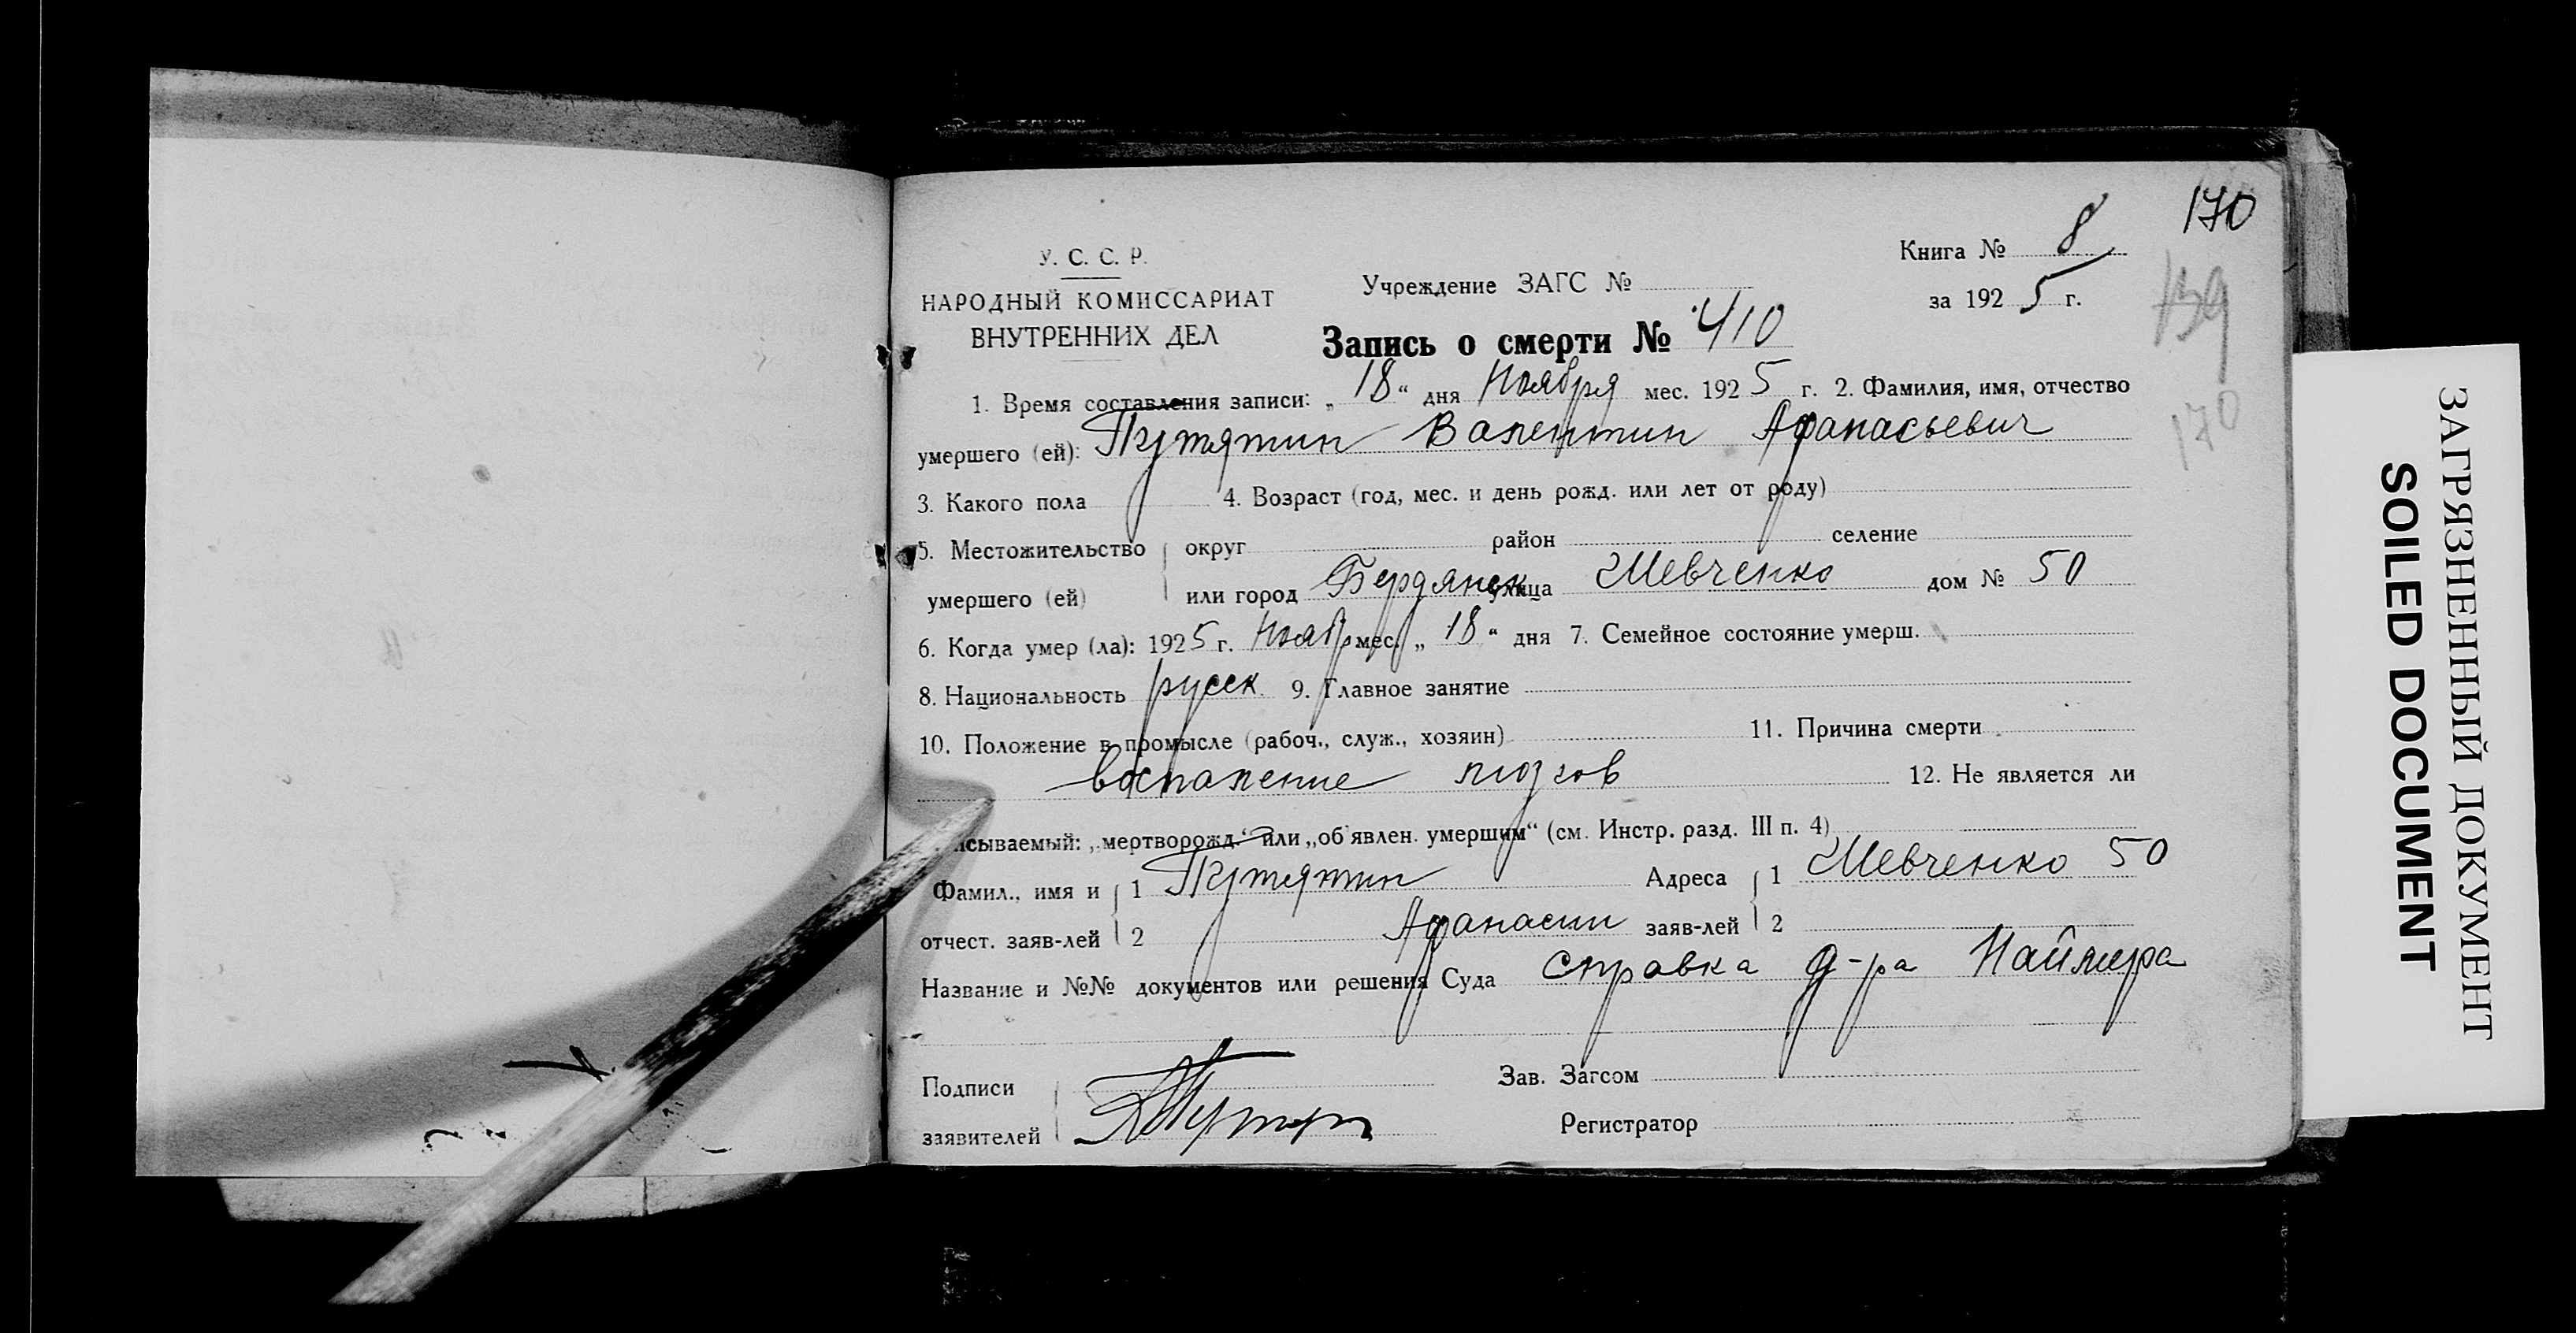 170
У. С. С. Р.
НАРОДНЫЙ КОМИССАРИАТ
ВНУТРЕННИХ ДЕЛ
Учреждение ЗАГС №
Книга № 8
за 192 5 г.
139
170
Запись о смерти № 410
1. Время составления записи: „ 18 “ дня Ноября мес. 192 5 г. 2. Фамилия, имя, отчество
умершего (ей): Путятин Валентин Афанасьевич
3. Какого пола 4. Возраст (год, мес. и день рожд. или лет от роду)
5. Местожительство округ район селение
умершего (ей) или город Бердянск улица Шевченко дом № 50
6. Когда умер (ла): 192 5 г. Ноябр мес. „ 18 “ дня 7. Семейное состояние умерш.
8. Национальность русск. 9. Главное занятие
10. Положение в промысле (рабоч., служ., хозяин) 11. Причина смерти
воспаление мозгов 12. Не является ли
исываемый: „мертворожд.“ или „об'явлен. умершим“ (см. Инстр. разд. III п. 4)
Фамил., имя и 1 Путятин Адреса 1 Шевченко 50
отчест. заяв-лей 2 Афанасии заяв-лей 2
Название и №№ документов или решения Суда справка д-ра Наймера
Подписи Зав. Загсом
заявителей Регистратор
ЗАГРЯЗНЕННЫЙ ДОКУМЕНТ
SOILED DOCUMENT